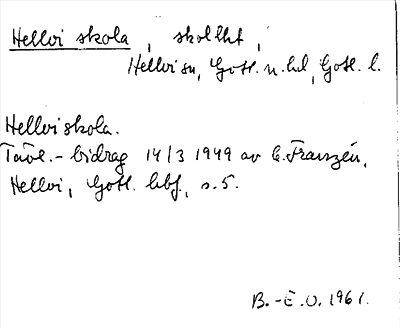 Hellvi skola, skollht,
Hellvi sn, Gotl. n. hd, Gotl. l.
Hellvi skola.
Tävl.-bidrag 14/3 1949 av E. Franzén,
Hellvi, Gotl. hbf., s. 5.
B.-E. O. 1961.